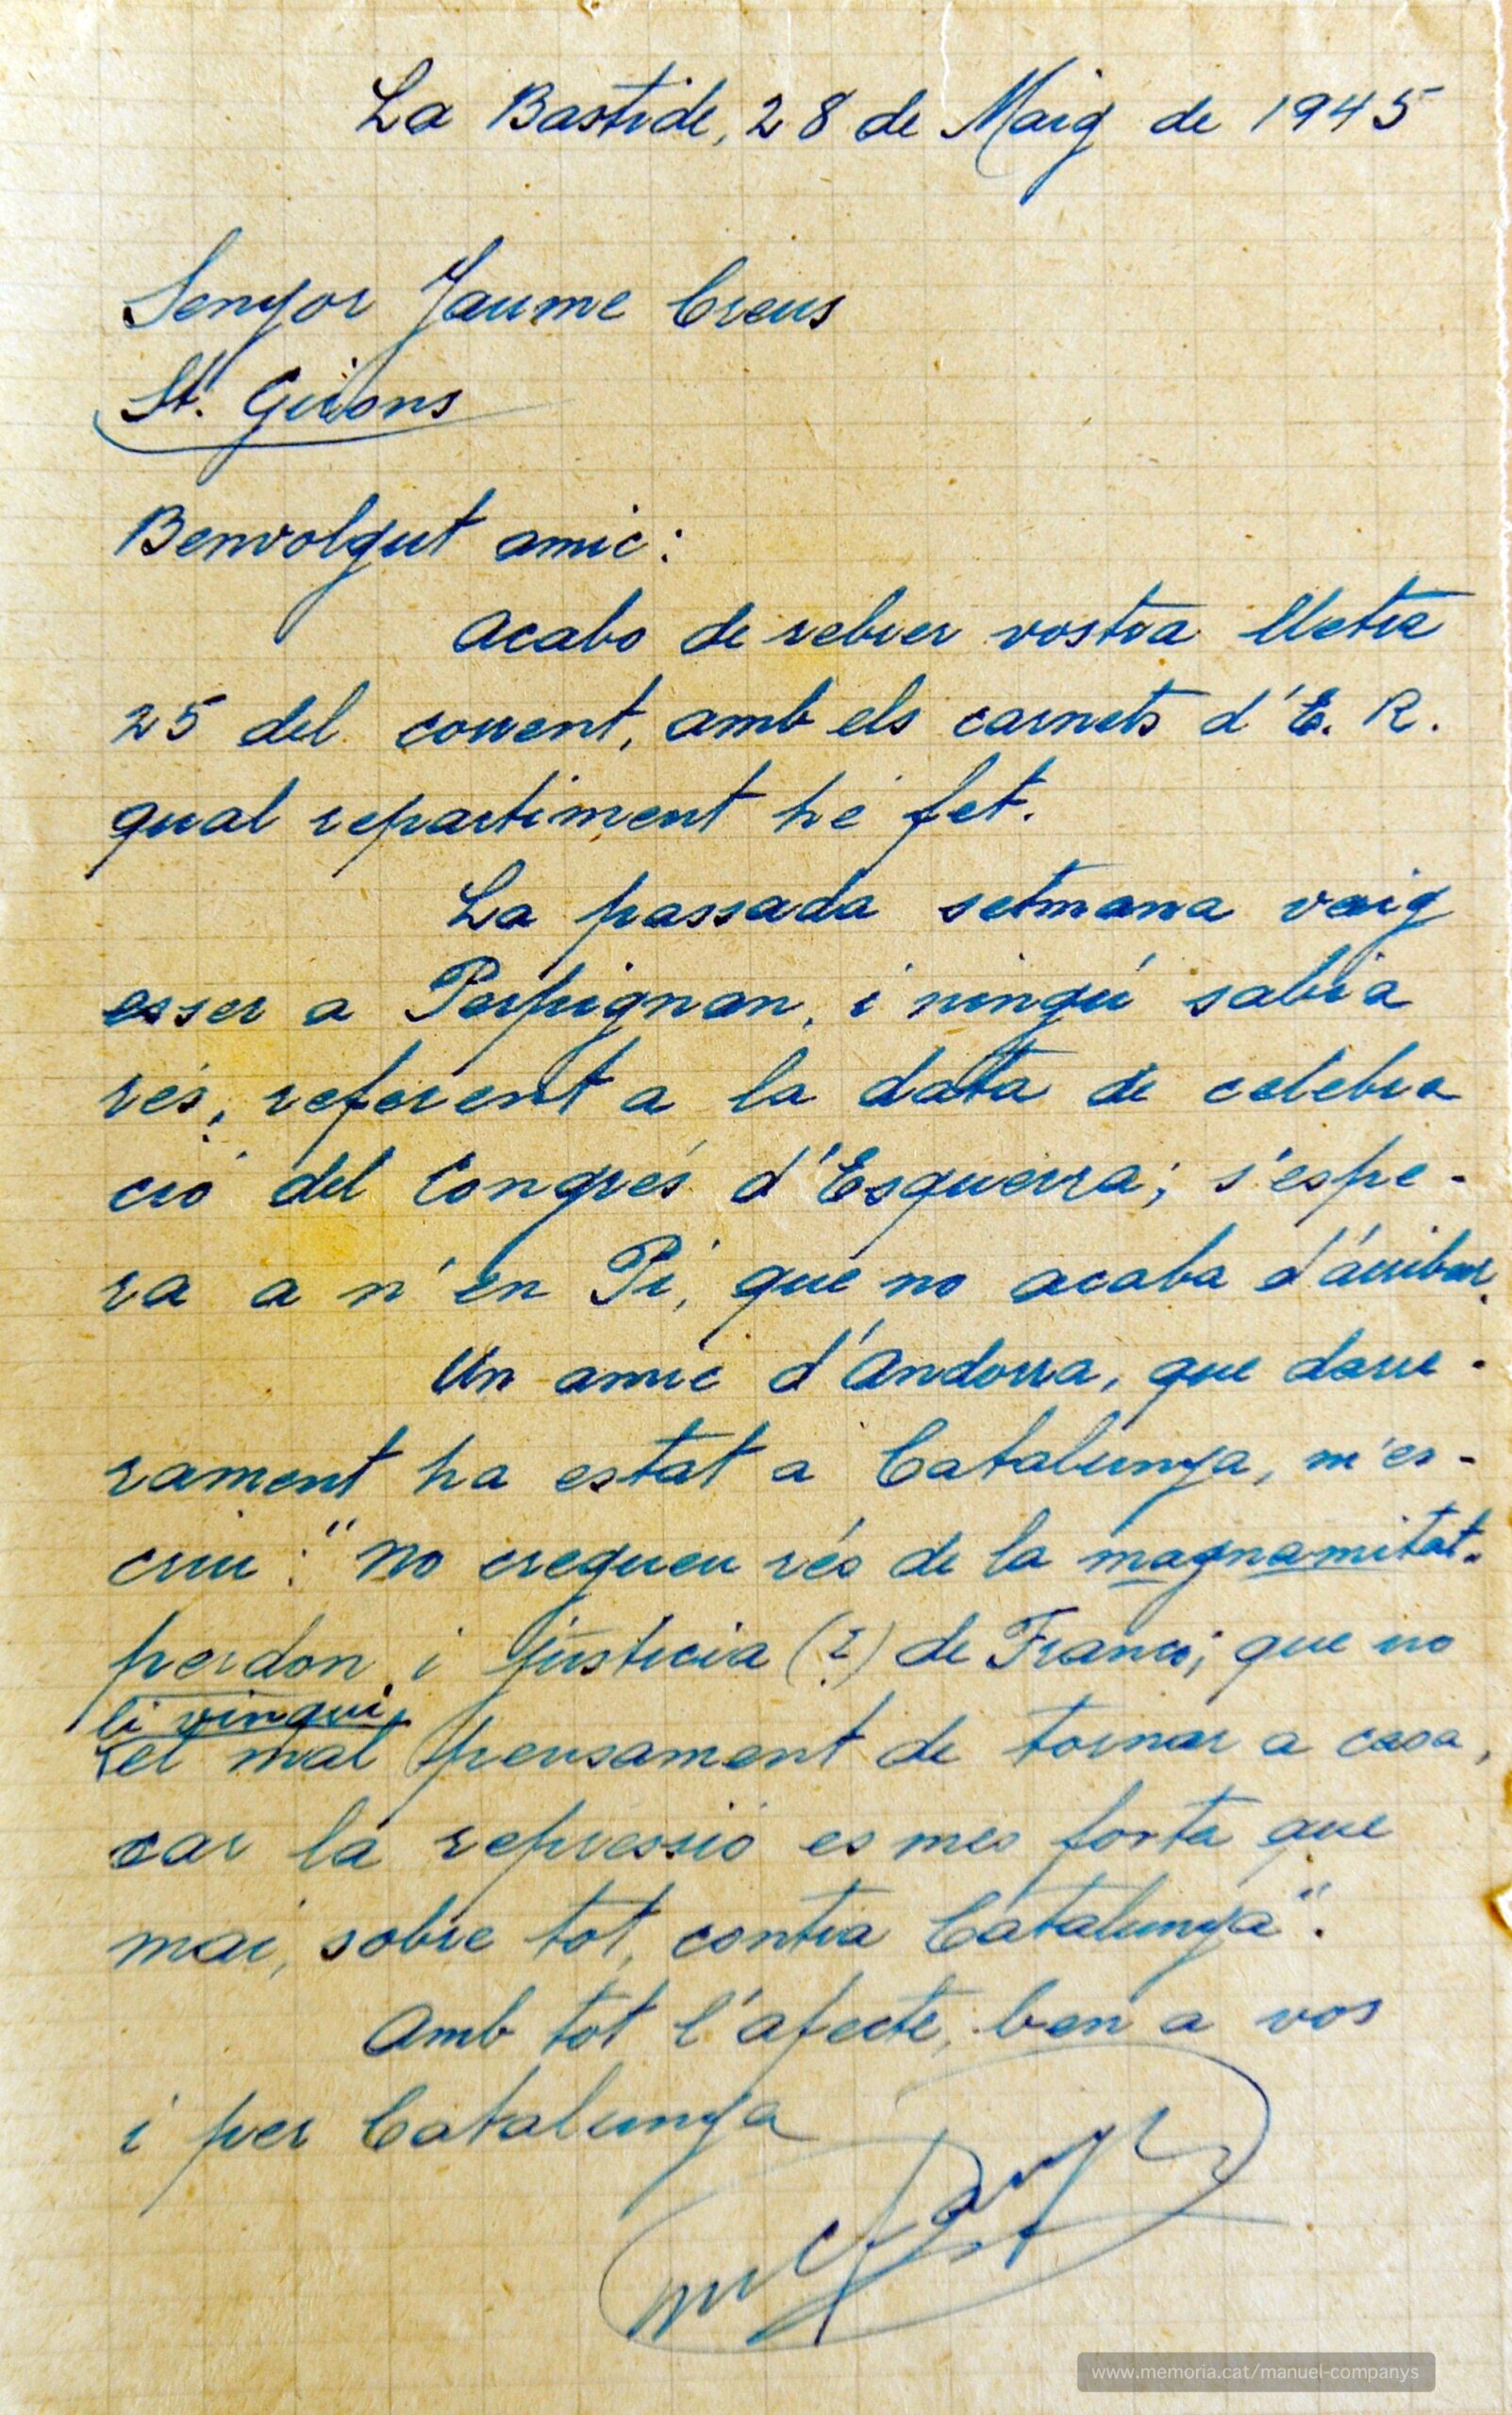 La Bastide, 28 de Maig de 1945
Senyor Jaume Creus
St. Girons
Benvolgut amic:
Acabo de rebrer vostra lletra
25 del corrent, amb els carnets d'E. R.
qual repartiment he fet.
La passada setmana vaig
esser a Perpignan, i ningú sabia
rés, referent a la data de celebra
ció del Congrés d'Esquerra; s'espe-
ra a n'en Pi, que no acaba d'arribar.
Un amic d'Andorra, que darre-
rament ha estat a Catalunya, m'es-
criu: "No cregueu rés de la magnamitat,
perdon i justicia (?) de Franco; que no
li vingui
el mal pensament de tornar a casa,
car la repressió es mes forta que
mai, sobre tot, contra Catalunya".
Amb tot l'afecte, ben a vos
i per Catalunya
www.memoria.cat/manuel-companys